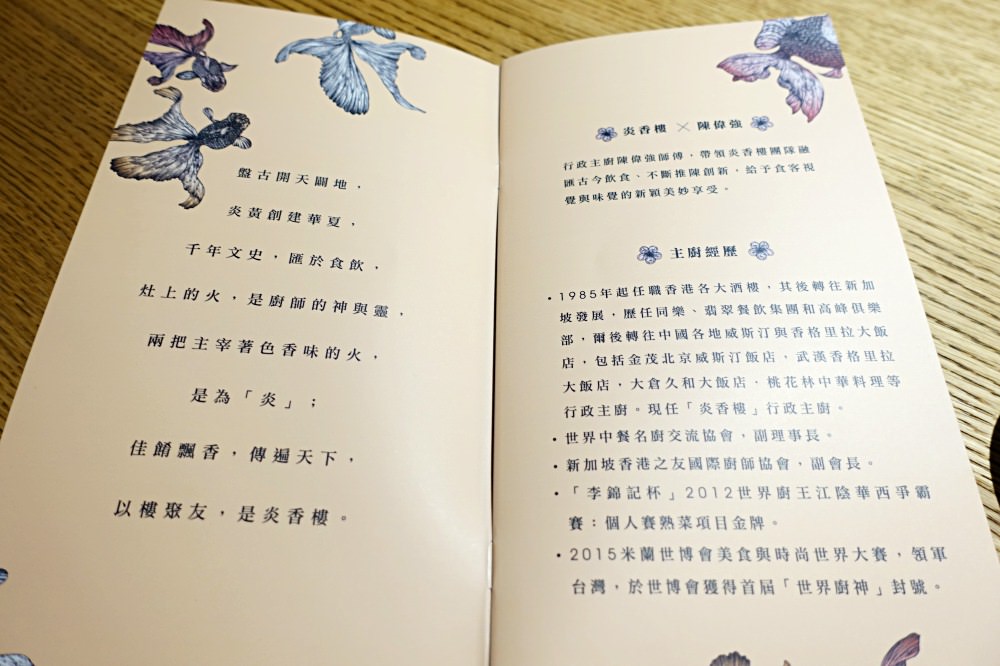 盤古開天闢地，
炎黃創建華夏，
千年文史，匯於食飲，
灶上的火，是廚師的神與靈，
兩把主宰著色香味的火，
是為「炎」；
佳餚飄香，傳遍天下，
以樓聚友，是炎香樓。
炎香樓 × 陳偉強
行政主廚陳偉強師傅，帶領炎香樓團隊融
匯古今飲食、不斷推陳創新，給予食客視
覺與味覺的新穎美妙享受。
主廚經歷
• 1985年起任職香港各大酒樓，其後轉往新加
坡發展，歷任同樂、翡翠餐飲集團和高峰俱樂
部，爾後轉往中國各地威斯汀與香格里拉大飯
店，包括金茂北京威斯汀飯店，武漢香格里拉
大飯店，大倉久和大飯店．桃花林中華料理等
行政主廚。現任「炎香樓」行政主廚。
• 世界中餐名廚交流協會，副理事長。
• 新加坡香港之友國際廚師協會，副會長。
• 「李錦記杯」2012世界廚王江陰華西爭霸
賽：個人賽熟菜項目金牌。
• 2015米蘭世博會美食與時尚世界大賽，領軍
台灣，於世博會獲得首屆「世界廚神」封號。